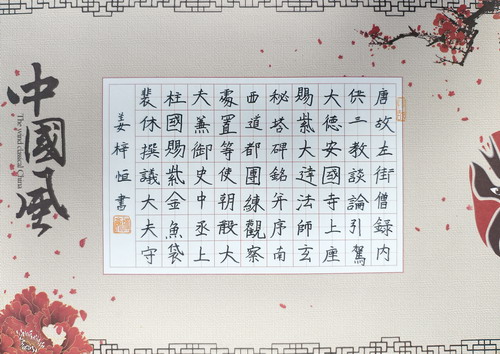 唐故左街僧録内
供三教談論引駕
大德安國寺上座
賜紫大達法師玄
秘塔碑銘并序南
西道都團練觀察
處置等使朝散大
夫兼御史中丞上
柱國賜紫金魚袋
裴休撰議大夫守
姜梓恒書
中國風
The wind classical China